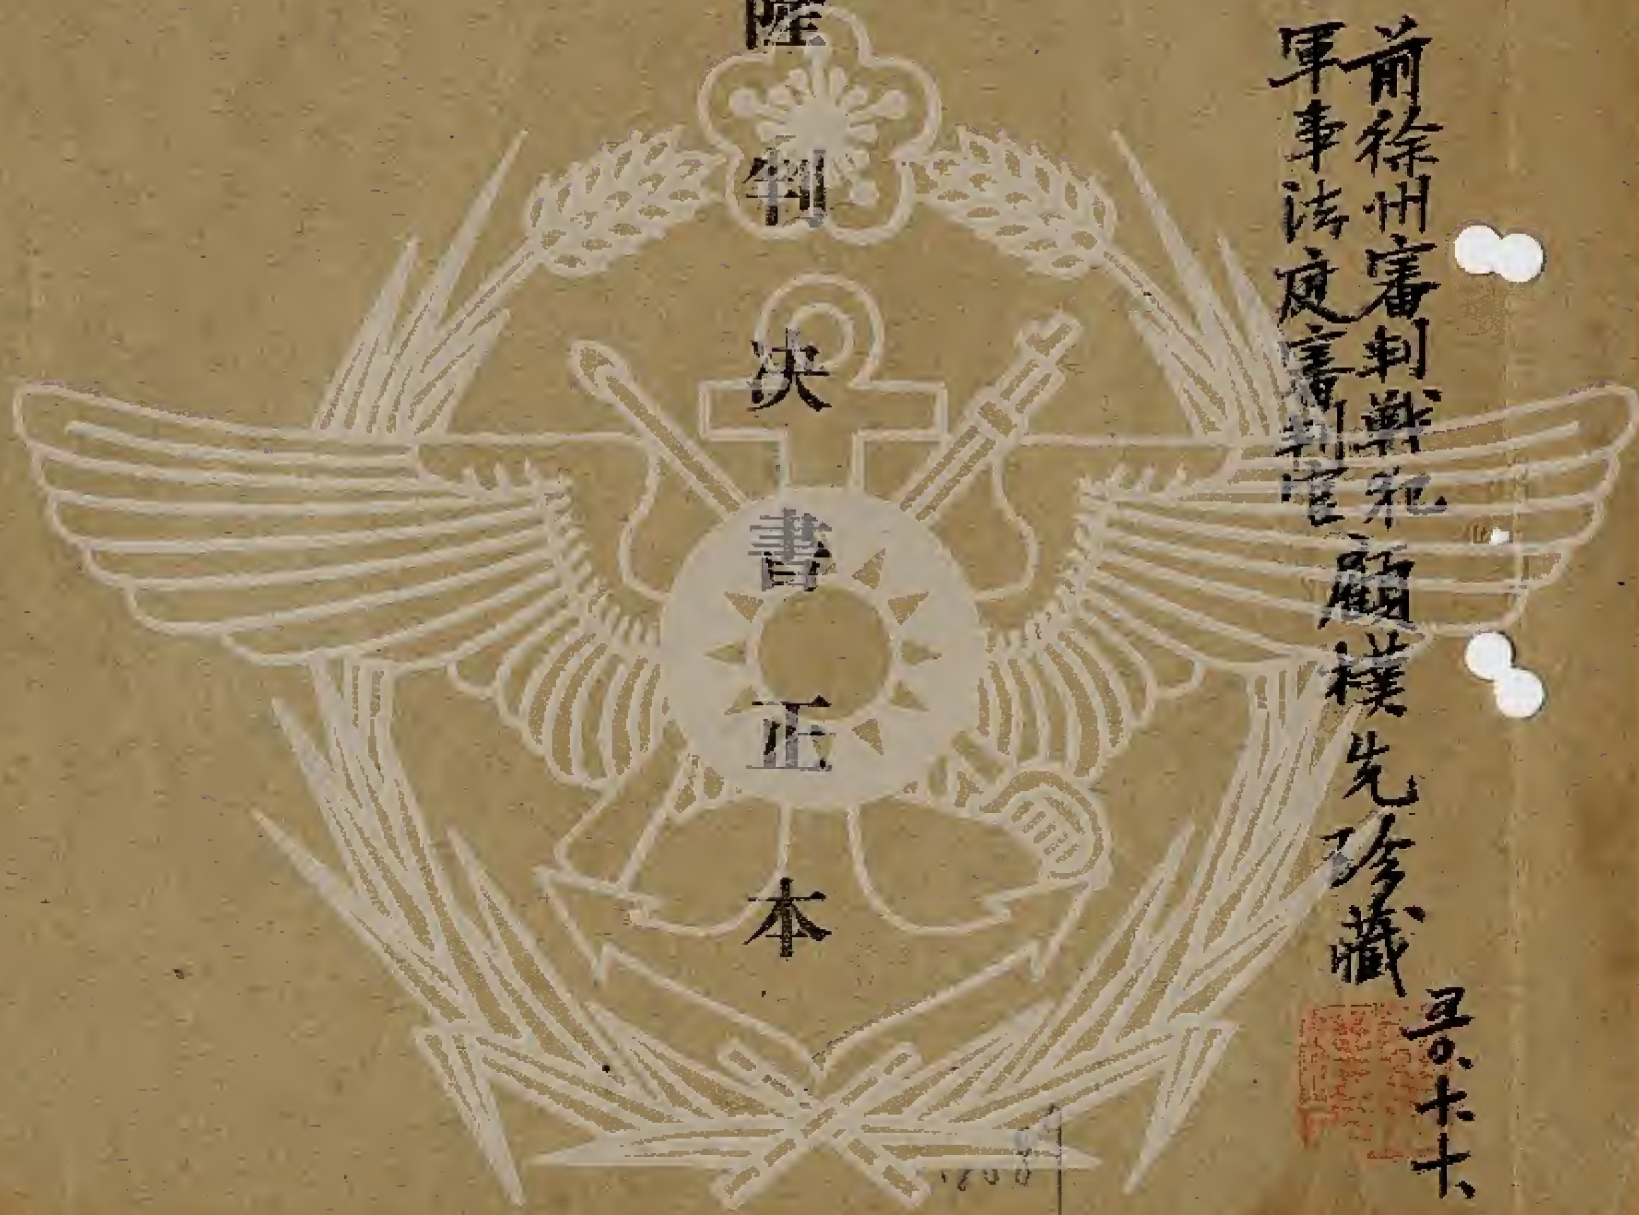 前徐州審判戰犯
軍事法庭審判官
顧樸先珍藏
五〇、十、十、
隆判決書正本